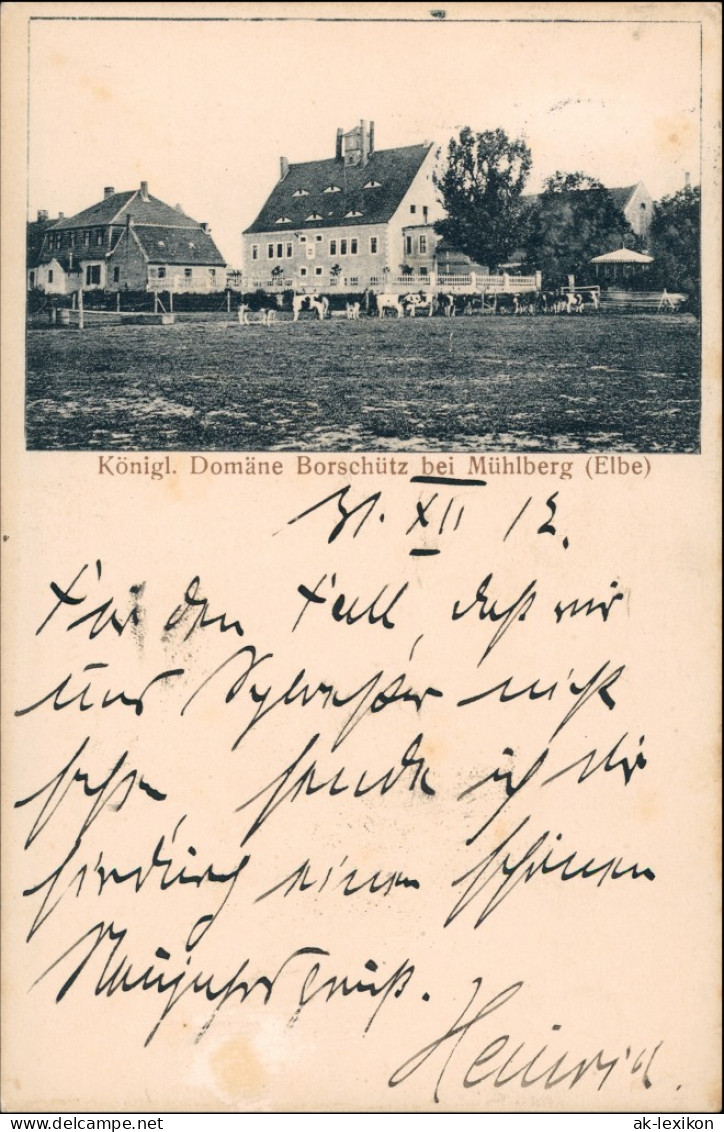 Königl. Domäne Borschütz bei Mühlberg (Elbe)
31. XII 12.
Für den Fall, daß wir
uns Sylvester nicht
sehen, sende ich dir
hirdurch einen schönen
Neujahrsgruß.
Heinrich.
ak-lexikon